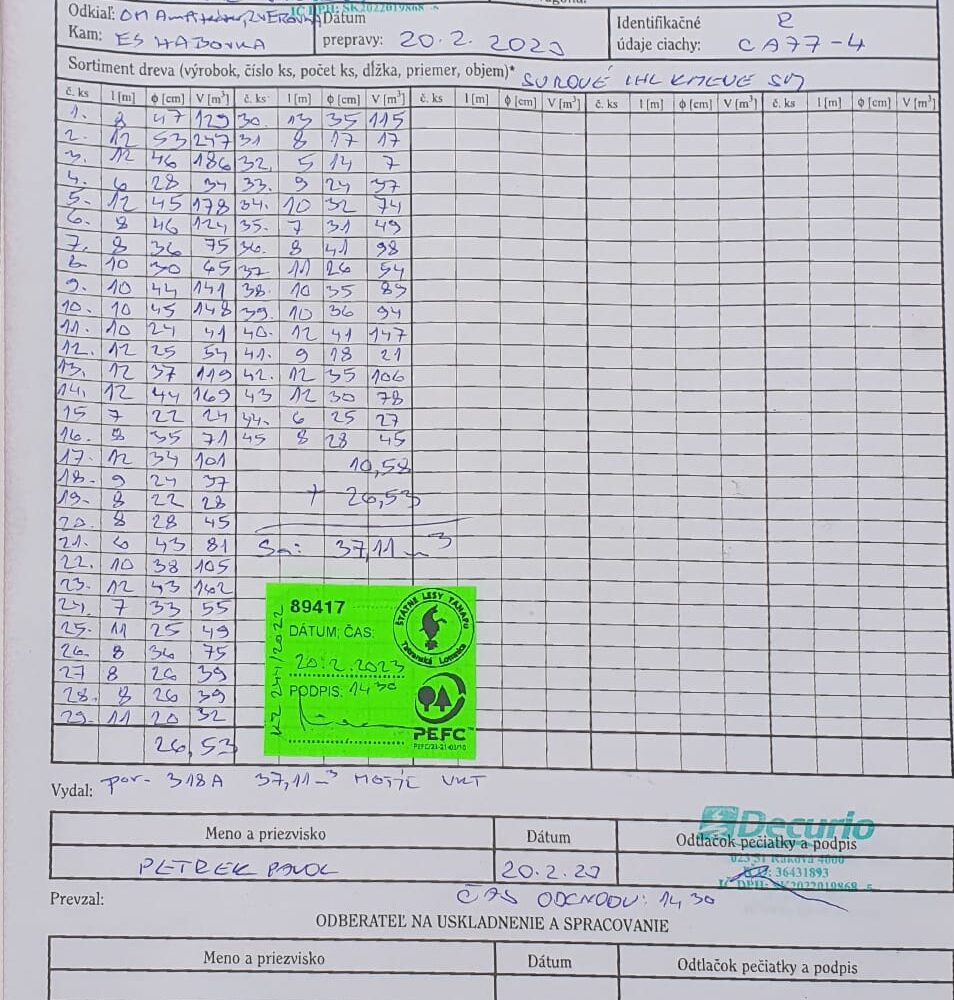 IČ DPH: SK2022019868 -6
Odkiaľ: OM ZVEROVKA
Dátum
Kam: ES HABOVKA
prepravy: 20.2. 2023
Identifikačné R
údaje ciachy: CA77-4
Sortiment dreva (výrobok, číslo ks, počet ks, dĺžka, priemer, objem)* SUROVÉ IHL KMENE SM
č. ks l [m] ϕ [cm] V [m³] č. ks l [m] ϕ [cm] V [m³] č. ks l [m] ϕ [cm] V [m³] č. ks l [m] ϕ [cm] V [m³] č. ks l [m] ϕ [cm] V [m³]
1. 8 47 129 30. 13 35 115
2. 12 53 247 31 8 17 17
3. 12 46 186 32. 5 14 7
4. 6 28 34 33. 9 24 37
5. 12 45 178 34. 10 32 74
6. 8 46 124 35. 7 31 49
7. 8 36 75 36. 8 41 98
8. 10 30 65 37 11 26 54
9. 10 44 141 38. 10 35 89
10. 10 45 148 39. 10 36 94
11. 10 24 41 40. 12 41 147
12. 12 25 54 41. 9 18 21
13. 12 37 119 42. 12 35 106
14. 12 44 169 43 12 30 78
15 7 22 24 44. 6 25 27
16. 8 35 71 45 8 28 45
17. 12 34 101 10,58
18. 9 24 37
19. 8 22 28 + 26,53
20. 8 28 45
21. 6 43 81 Sm: 37,11 m3
22. 10 38 105
23. 12 43 162
24. 7 33 55
25. 11 25 49
26. 8 36 75
27 8 26 39
28. 8 26 39
29. 11 20 32
26,53
89417
DÁTUM; ČAS:
20.2.2023
PODPIS: 14 30
KZ 244/2022
ŠTÁTNE LESY TANAPU
Tatranská Lomnica
PEFC™
PEFC/23-21-03/10
Vydal: por- 318A 37,11 m3 MOTÍC VKT
Decurio
Meno a priezvisko Dátum Odtlačok pečiatky a podpis
PETREK PAVOL 20.2.23
023 51 Raková 4000
IČO: 36431893
IČ DPH: SK2022019868 -6
Prevzal: ČAS ODCHODU: 14 30
ODBERATEĽ NA USKLADNENIE A SPRACOVANIE
Meno a priezvisko Dátum Odtlačok pečiatky a podpis